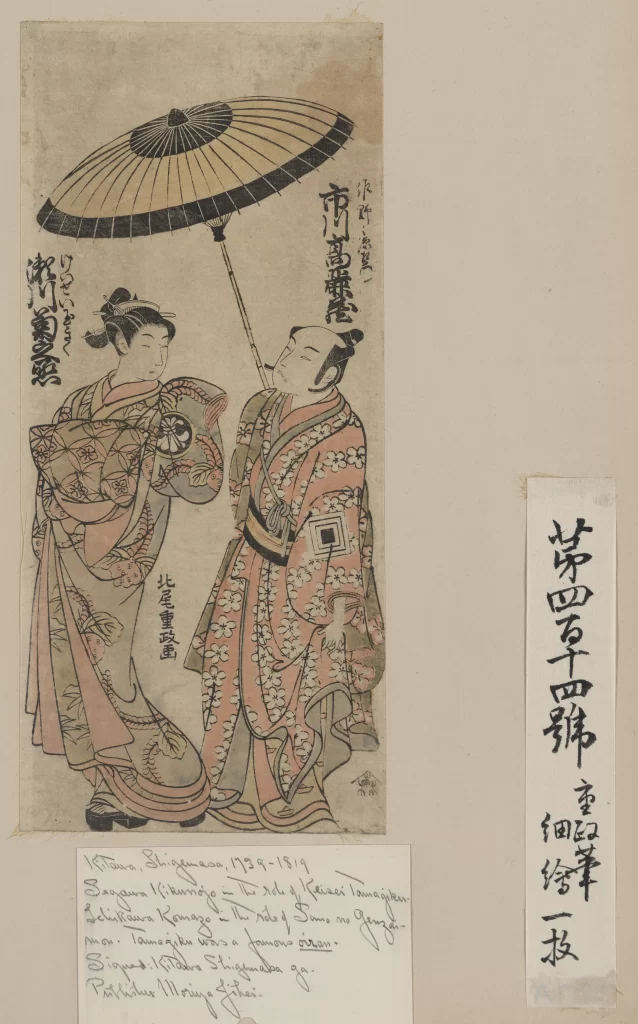 市川高麗蔵
けいせい
瀬川菊之丞
北尾重政画
第四百十四號
重政筆
細繪一枚
Kitawo, Shigemasa, 1739-1819
Segawa Kikunojo in the role of Keisei Tamagiku.
Ichikawa Komazo in the role of Sano no Genzae-
mon. Tamagiku was a famous oiran.
Signed: Kitawo Shigemasa ga.
Publisher Moriya Jihei.